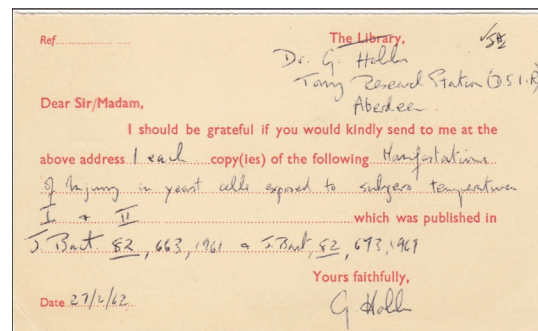 Ref.
The Library,
Dr. G. Hobbs
Torry Research Station (D.S.I.R)
Aberdeen.
Dear Sir/Madam,
I should be grateful if you would kindly send to me at the
above address 1 each copy(ies) of the following Manifestations
of Injury in yeast cells exposed to subzero temperatures
I & II which was published in
J. Bact. 82, 663, 1961 & J. Bact, 82, 673, 1961
Yours faithfully,
Date 27/2/62
G Hobbs